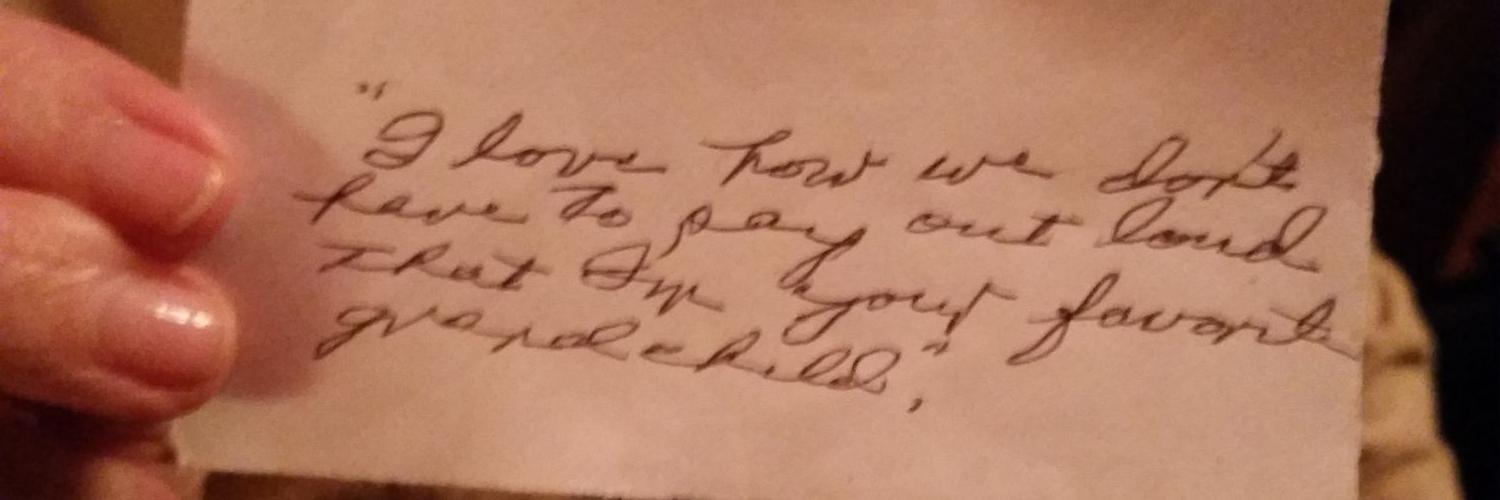 "I love how we don't
have to say out loud
that I'm your favorite
grandchild",